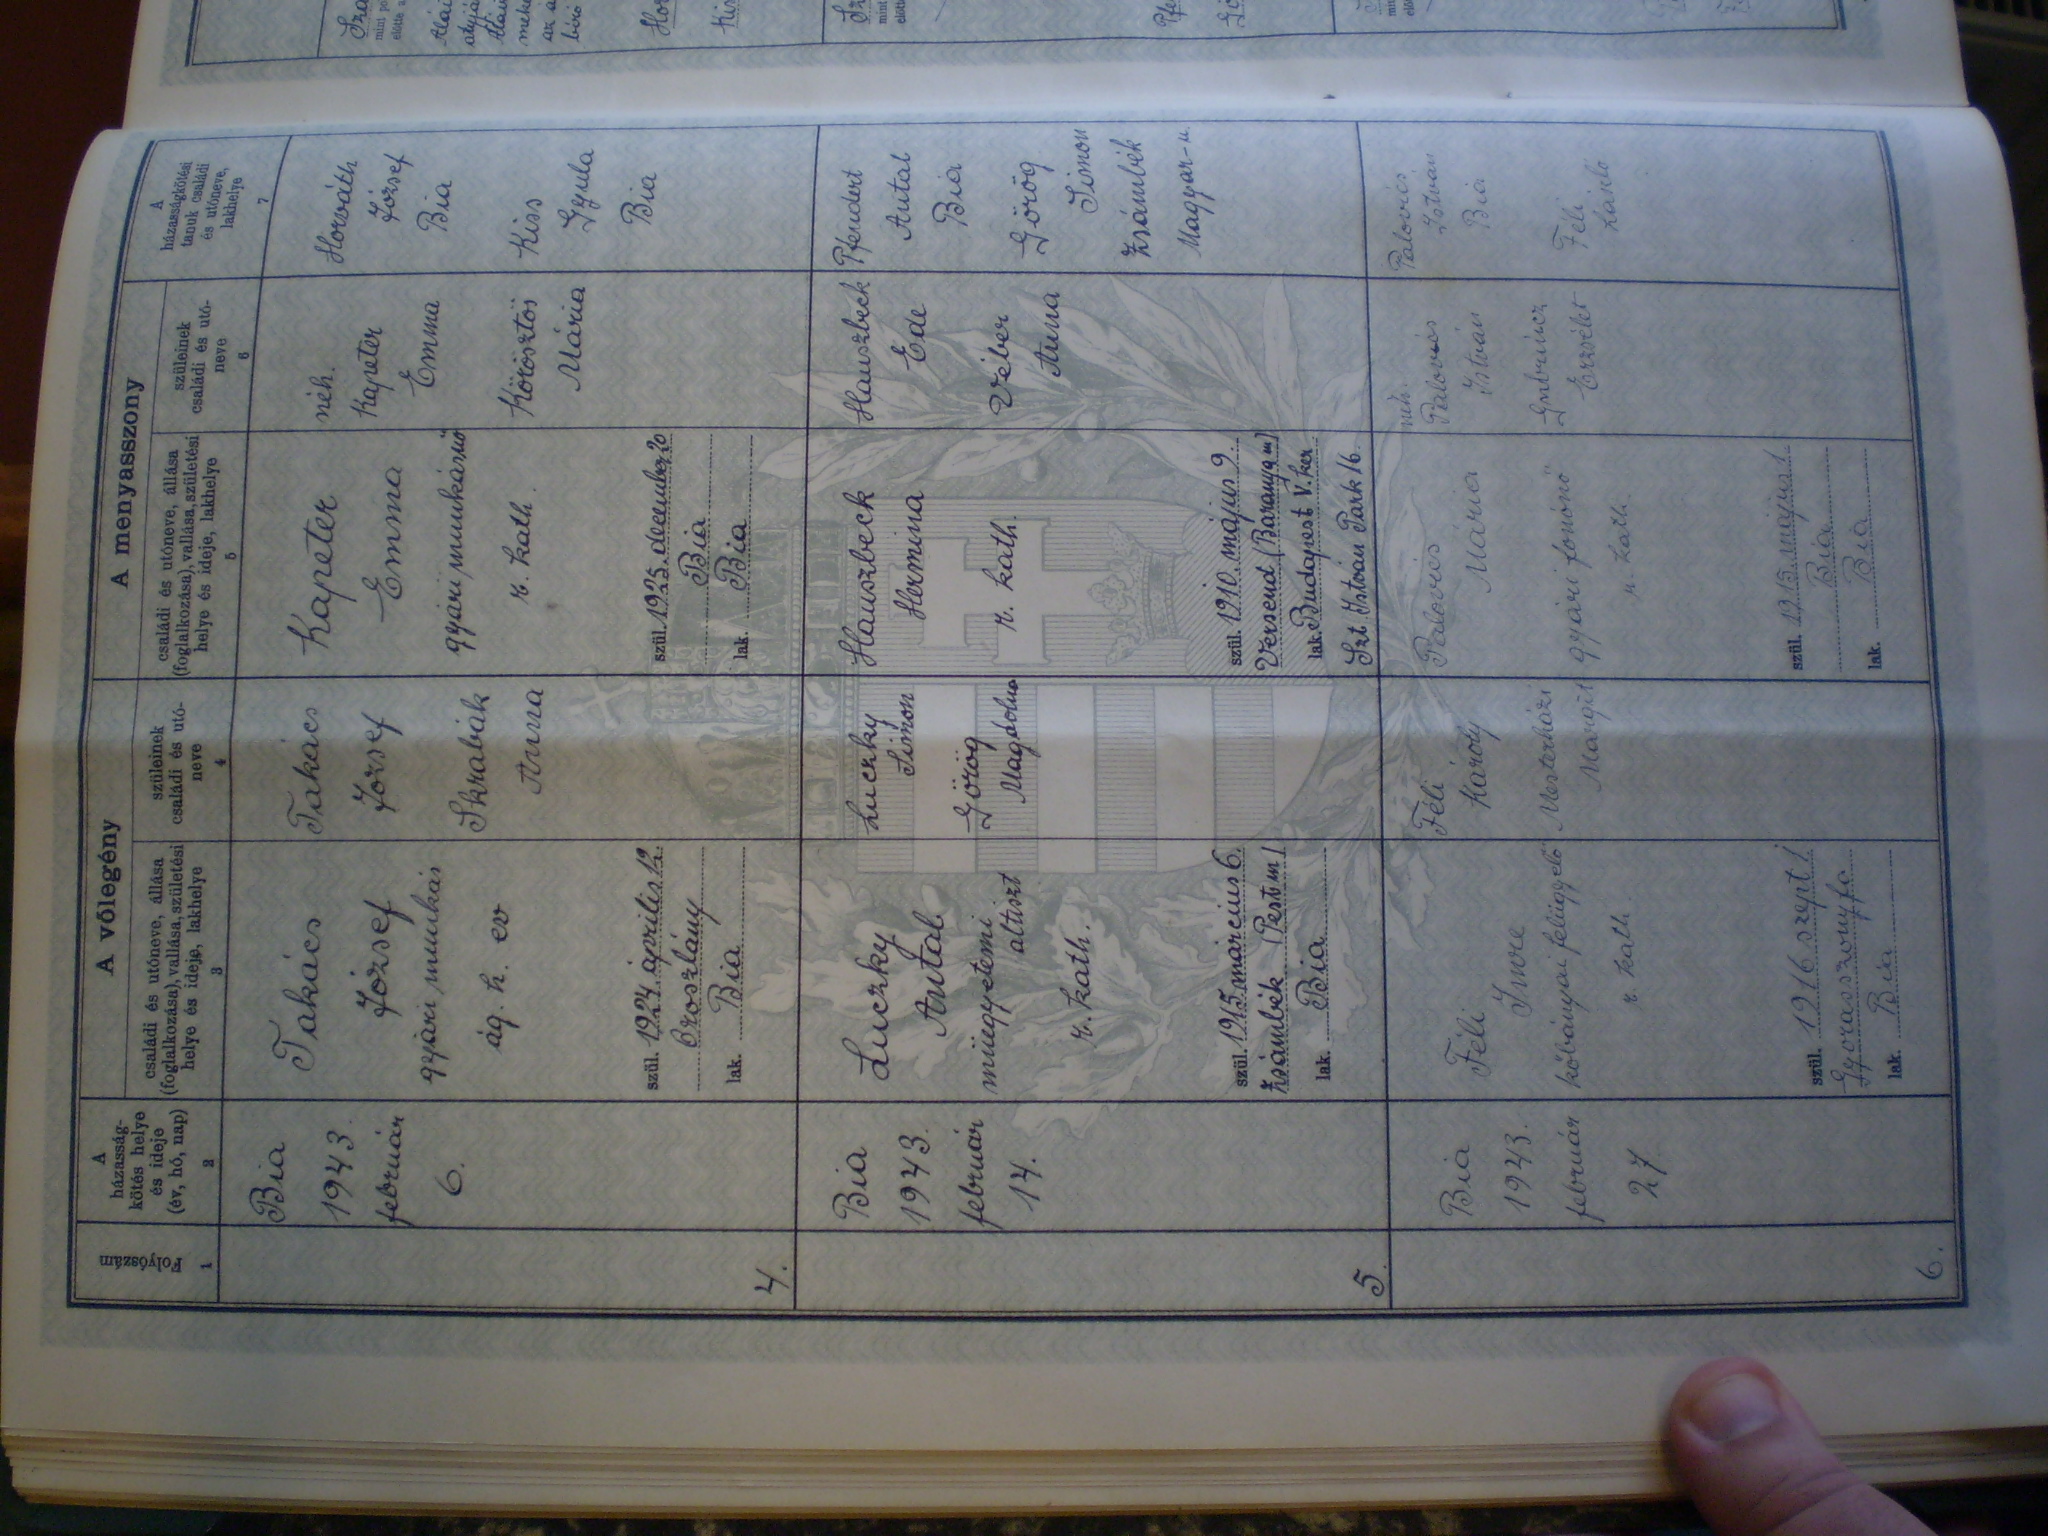 A vőlegény
A menyasszony
Folyószám
1
A
házasság-
kötés helye
és ideje
(év, hó, nap)
2
családi és utóneve, állása
(foglalkozása), vallása, születési
helye és ideje, lakhelye
3
szüleinek
családi és utó-
neve
4
családi és utóneve, állása
(foglalkozása), vallása, születési
helye és ideje, lakhelye
5
szüleinek
családi és utó-
neve
6
A
házasságkötési
tanuk családi
és utóneve,
lakhelye
7
4.
Bia
1943.
február
6.
Takács
József
gyári munkás
ág. h. ev
szül. 1924. április 12.
Oroszlány
lak. Bia
Takács
József
Skrabák
Anna
Kapeter
Emma
gyári munkásnő
r. kath.
szül. 1925. december 20
Bia
lak. Bia
néh.
Kapeter
Emma
Körösztös
Mária
Horváth
József
Bia
Kiss
Gyula
Bia
5.
Bia
1943.
február
14.
Luczky
Antal
műegyetemi
altiszt
r. kath.
szül. 1915. március 6.
Zsámbék (Pest m)
lak. Bia
Luczky
Simon
Görög
Magdolna
Hauszbeck
Hermina
r. kath.
szül. 1910. május 9.
Versend (Baranya m)
lak. Budapest V. ker
Szt. István Park 16.
Hauszbeck
Ede
Véber
Anna
Pfendert
Antal
Bia
Görög
Simon
Zsámbék
Magyar-u.
6.
Bia
1943.
február
27.
Féli
Imre
kőbányai felügyelő
r. kath.
szül. 1916 szept 1.
lak. Bia
Féli
Károly
Mesterházi
Margit
Palovics
Mária
gyári fonónő
r. kath.
szül. 1915. május 1.
Bia
lak. Bia
néh.
Palovics
István
Erzsébet
Palovics
István
Bia
Féli
László